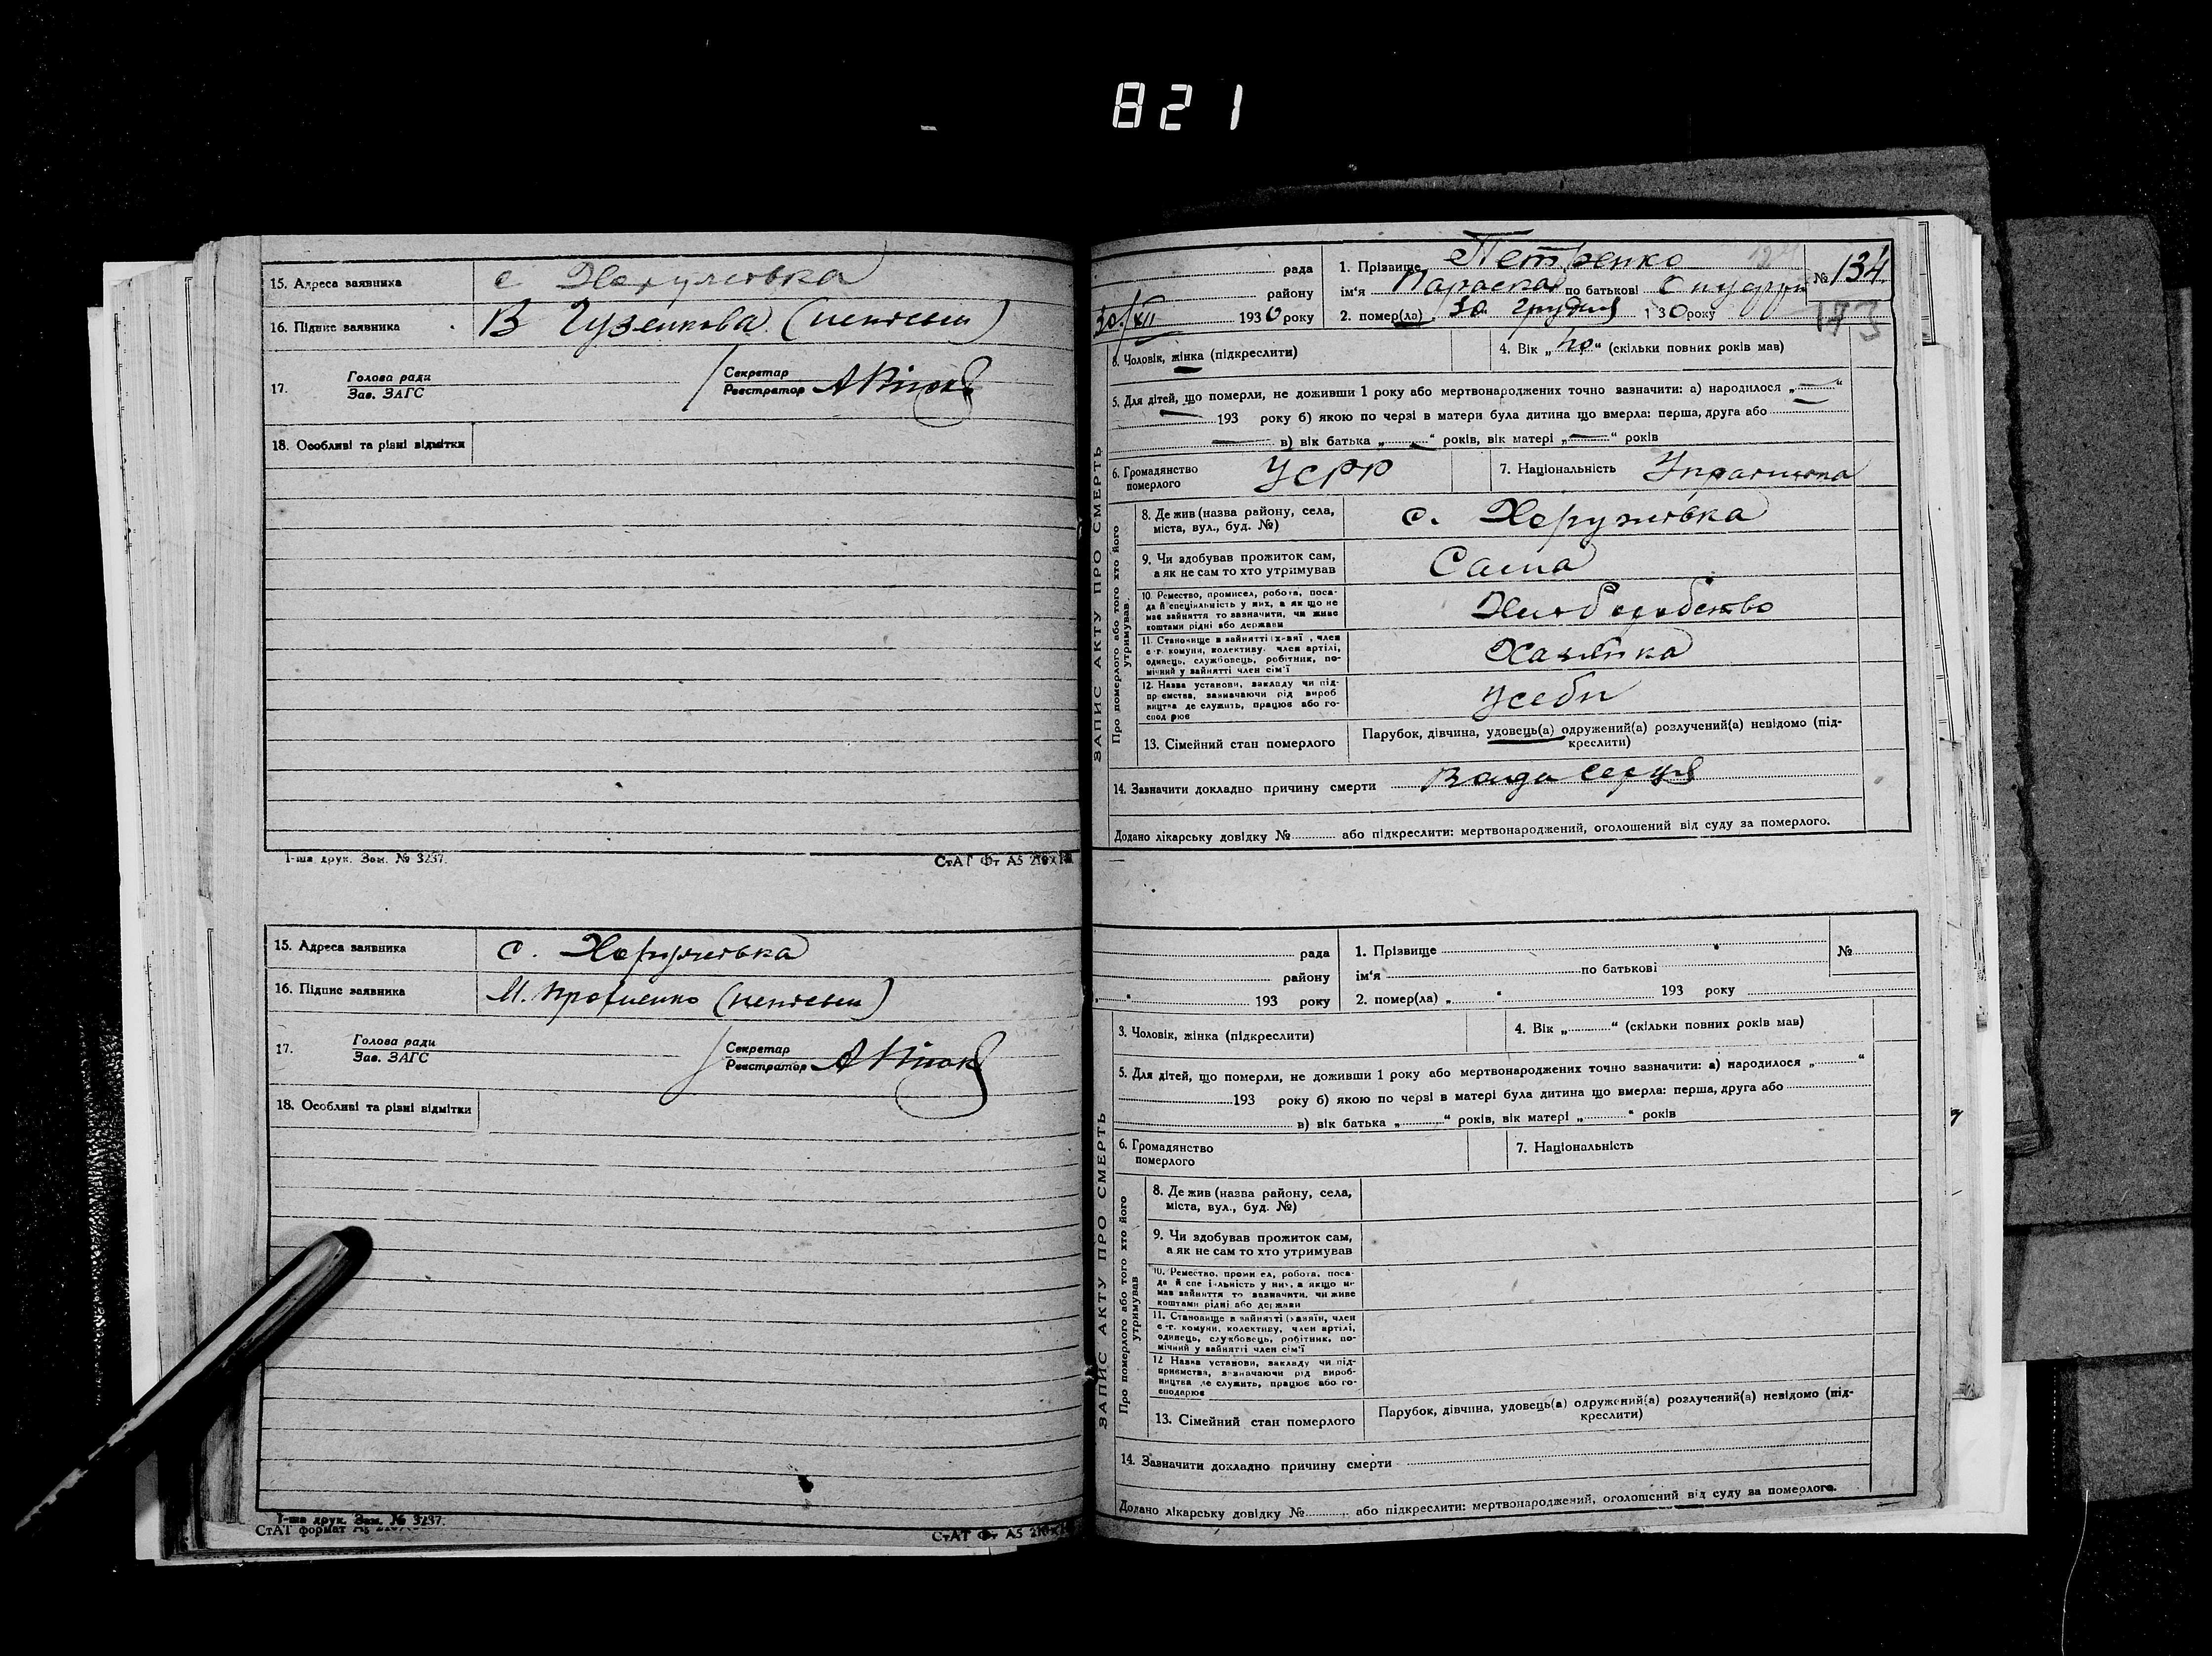 821
15. Адреса заявника с. Хоружівка
16. Підпис заявника В Гузенкова (неписьм)
17. Голова ради
Зав. ЗАГС
Секретар
Реєстратор
18. Особливі та різні відмітки
1-ша друк. Зам. № 3237.
СтАТ Фт А5
15. Адреса заявника с. Хоружівка
16. Підпис заявника (неписьм)
17. Голова ради
Зав. ЗАГС
Секретар
Реєстратор
18. Особливі та різні відмітки
1-ша друк. Зам. № 3237.
СтАТ формат А5
СтАТ Фт А5
ЗАПИС АКТУ ПРО СМЕРТЬ
рада
району
30/XII 1930 року
1. Прізвище Петренко
ім'я Параска по батькові
2. помер(ла) 30 грудня 1 30 року
№ 134
3. Чоловік, жінка (підкреслити)
4. Вік „ “ (скільки повних років мав)
5. Для дітей, що померли, не доживши 1 року або мертвонароджених точно зазначити: а) народилося „—“
— 193 року б) якою по черзі в матери була дитина що вмерла: перша, друга або
— в) вік батька „—“ років, вік матері „—“ років
6. Громадянство
померлого
УСРР
7. Національність Українка
Про померлого або того хто його
утримував
8. Де жив (назва району, села,
міста, вул., буд. №)
с. Хоружівка
9. Чи здобував прожиток сам,
а як не сам то хто утримував
Сама
10. Ремество, промисел, робота, поса-
да й спеціяльність у них, а як що не
має зайняття то зазначити, чи живе
коштами рідні або держави
Хліборобство
11. Становище в зайнятті (х-зяї , член
с-г. комуни, колективу, член артілі,
одинець, службовець, робітник, по-
мічний у зайнятті член сім'ї
Хазяйка
12. Назва установи, закладу чи під-
приємства, зазначаючи рід вироб
ництва де служить, працює або го-
сподарює
Усеби
13. Сімейний стан померлого
Парубок, дівчина, удовець(а) одружений(а) розлучений(а) невідомо (під-
креслити)
14. Зазначити докладно причину смерти Вада серця
Додано лікарську довідку № або підкреслити: мертвонароджений, оголошений від суду за померлого.
ЗАПИС АКТУ ПРО СМЕРТЬ
рада
району
193 року
1. Прізвище
ім'я по батькові
2. помер(ла) „ 193 року
№
3. Чоловік, жінка (підкреслити)
4. Вік „ “ (скільки повних років мав)
5. Для дітей, що померли, не доживши 1 року або мертвонароджених точно зазначити: а) народилося „ “
193 року б) якою по черзі в матері була дитина що вмерла: перша, друга або
в) вік батька „ “ років, вік матері „ “ років
6. Громадянство
померлого
7. Національність
Про померлого або того хто його
утримував
8. Де жив (назва району, села,
міста, вул., буд. №)
9. Чи здобував прожиток сам,
а як не сам то хто утримував
10. Ремество, промисел, робота, поса-
да й спеціяльність у них, а якщо не
має зайняття то зазначити, чи живе
коштами рідні або держави
11. Становище в зайнятті (хазяїн, член
с-г. комуни, колективу, член артілі,
одинець, службовець, робітник, по-
мічний у зайнятті член сім'ї
12. Назва установи, закладу чи під-
приємства, зазначаючи рід вироб-
ництва де служить, працює або го-
сподарює
13. Сімейний стан померлого
Парубок, дівчина, удовець(а) одружений(а) розлучений(а) невідомо (під-
креслити)
14. Зазначити докладно причину смерти
Додано лікарську довідку № або підкреслити: мертвонароджений, оголошений від суду за померлого.